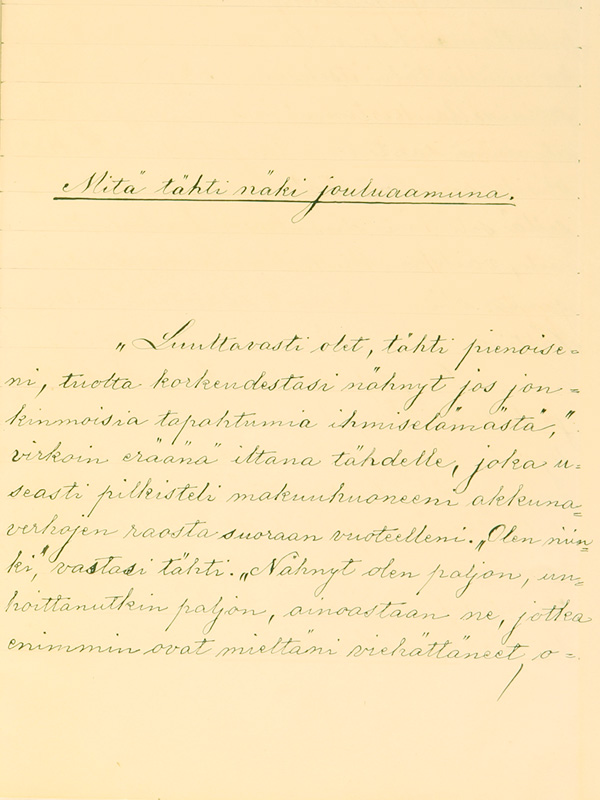 Mitä tähti näki jouluaamuna.
„Luultavasti olet, tähti pienoise=
ni, tuolta korkeudestasi nähnyt jos jon=
kinmoisia tapahtumia ihmiselämästä,"
virkoin eräänä iltana tähdelle, joka u=
seasti pilkisteli makuuhuoneeni akkuna=
verhojen raosta suoraan vuoteelleni. „Olen niin=
ki," vastasi tähti. „Nähnyt olen paljon, un=
hoittanutkin paljon, ainoastaan ne, jotka
enimmin ovat mieltäni viehättäneet, o=